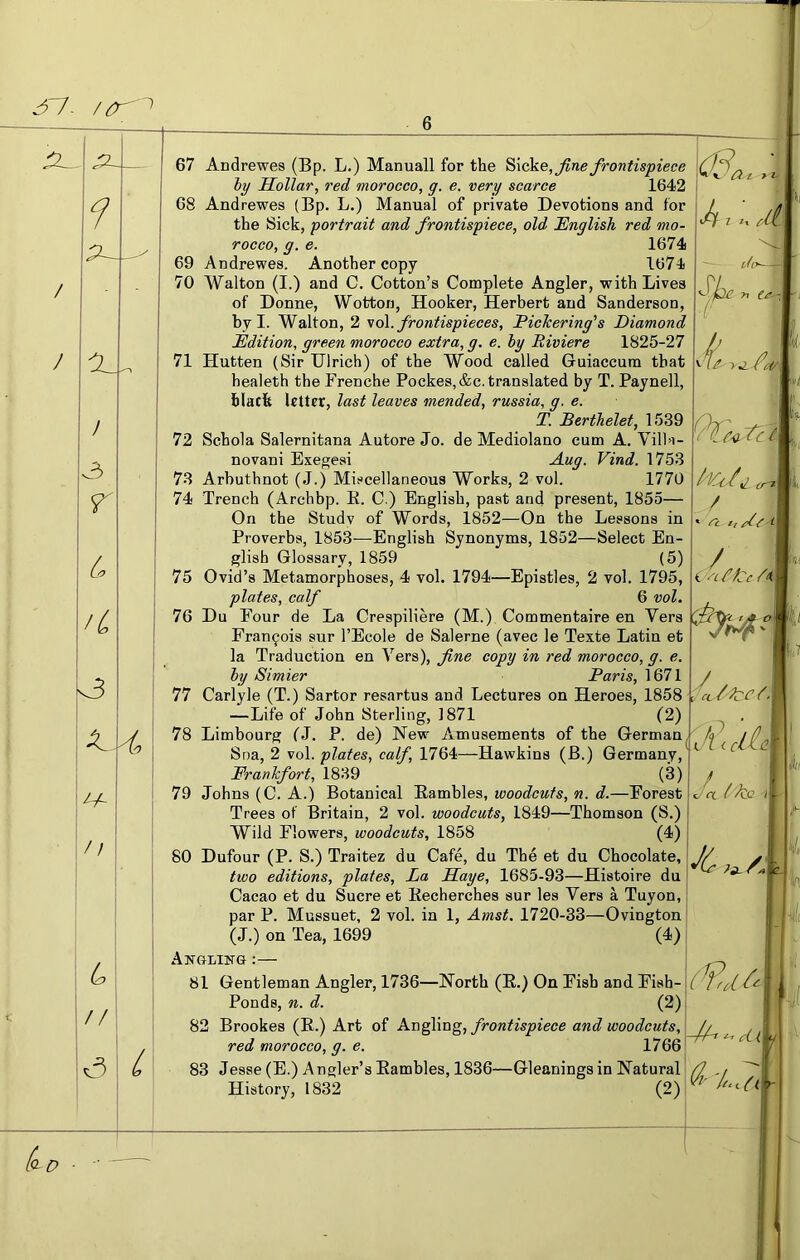 6
67 Andrewes (Bp. L.) Manuall for the Sicke, fine frontispiece
by Hollar, red morocco, g. e. very scarce 1642
68 Andrewes (Bp. L.) Manual of private Devotions and for
the Sick, portrait and frontispiece, old English red mo-
rocco, g. e. 1674
69 Andrewes. Another copy 1674
70 Walton (I.) and C. Cotton's Complete Angler, with Lives
of Donne, Wotton, Hooker, Herbert and Sanderson,
by I. Walton, 2 vol. frontispieces, Pickering's Diamond
Edition, green morocco extra, g. e. by Riviere 1825-27
71 Hutten (Sir Ulrich) of the Wood called Guiaccum that
healeth the Frenche Pockes, &c. translated by T. Paynell,
black letter, last leaves mended, russia, g. e.
T. Berthelet, 1539
72 Schola Salernitana Autore Jo. de Mediolano cum A. Villa-
novani Exegesi Aug. Vind. 1753
73 Arbuthnot (J.) Miscellaneous Works, 2 vol. 1770
74 Trench (Archbp. R. C.) English, past and present, 1855—
On the Study of Words, 1852—On the Lessons in
Proverbs, 1853—English Synonyms, 1852—Select En-
glish Glossary, 1859 (5)
75 Ovid's Metamorphoses, 4 vol. 1794—Epistles, 2 vol. 1795,
plates, calf 6 vol.
76 Du Four de La Crespilière (M.) Commentaire en Vers
François sur l'Ecole de Salerne (avec le Texte Latin et
la Traduction en Vers), fine copy in red morocco, g. e.
by Simier Paris, 1671
77 Carlyle (T.) Sartor resartus and Lectures on Heroes, 1858
—Life of John Sterling, 1871 (2)
78 Limbourg (J. P. de) New Amusements of the German
Spa, 2 vol. plates, calf, 1764—Hawkins (B.) Germany,
Frankfort, 1839 (3)
79 Johns (C. A.) Botanical Rambles, woodcuts, n. d.—Forest
Trees of Britain, 2 vol. woodcuts, 1849—Thomson (S.)
Wild Flowers, woodcuts, 1858 (4)
80 Dufour (P. S.) Traitez du Café, du Thé et du Chocolate,
two editions, plates, La Haye, 1685-93—Histoire du
Cacao et du Sucre et Recherches sur les Vers à Tuyon,
par P. Mussuet, 2 vol. in 1, Amst. 1720-33—Ovington
(J.) on Tea, 1699 (4)
ANGLING :—
81 Gentleman Angler, 1736—North (R.) On Fish and Fish-
Ponds, n. d. (2)
82 Brookes (R.) Art of Angling, frontispiece and woodcuts,
red morocco, g. e. 1766
83 Jesse (E.) Angler's Rambles, 1836—Gleanings in Natural
History, 1832 (2)